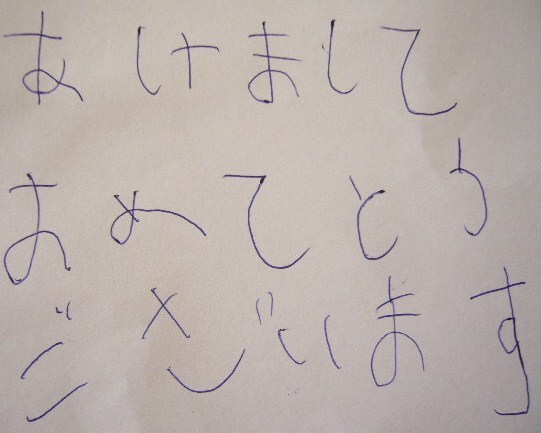 あけまして
おめてとう
ございます